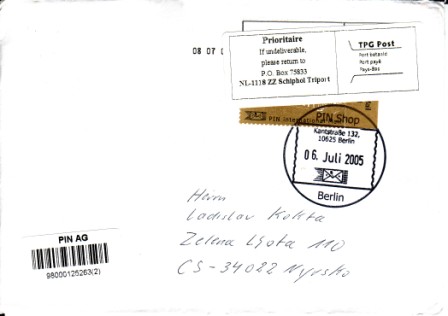 Prioritaire
If undeliverable,
please return to
P.O. Box 75833
NL-1118 ZZ Schiphol Triport
TPG Post
Port betaald
Port payé
Pays-Bas
08 07 0
PIN Shop
PIN international
Kantstraße 132,
10625 Berlin
06. Juli 2005
Berlin
Herrn
Ladislav Kokta
Zelena Lhota 110
CS-34022 Nyrsko
PIN AG
98000125263(2)